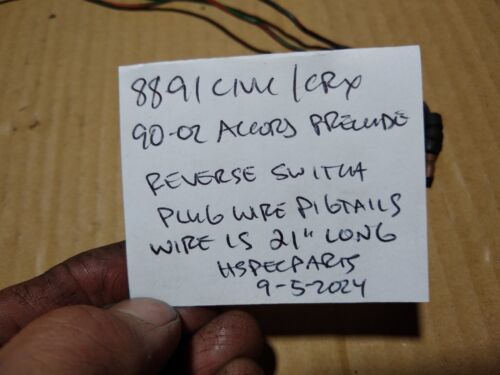 8891 CIVIC / CRX
90-02 ACCORD PRELUDE
REVERSE SWITCH
PLUG WIRE PIGTAILS
WIRE IS 21" LONG
HSPECPARTS
9-5-2024